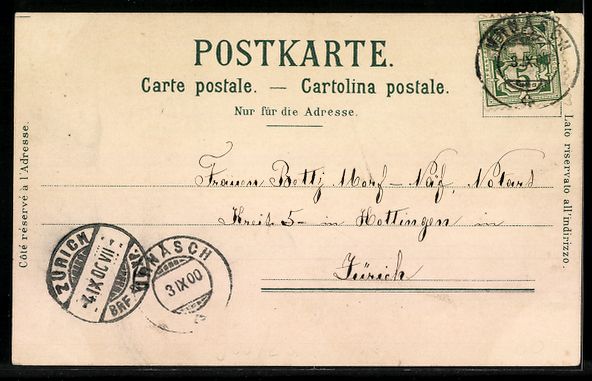 POSTKARTE.
Carte postale. — Cartolina postale.
Nur für die Adresse.
Côté réservé à l'Adresse.
Lato riservato all'indirizzo.
5
Frauen Betty Morf – Näf, Notars
Kreis 5 – in Hottingen in
Zürich
ZÜRICH
4.IX.00.VII
BRF
URNÄSCH
3 IX 00